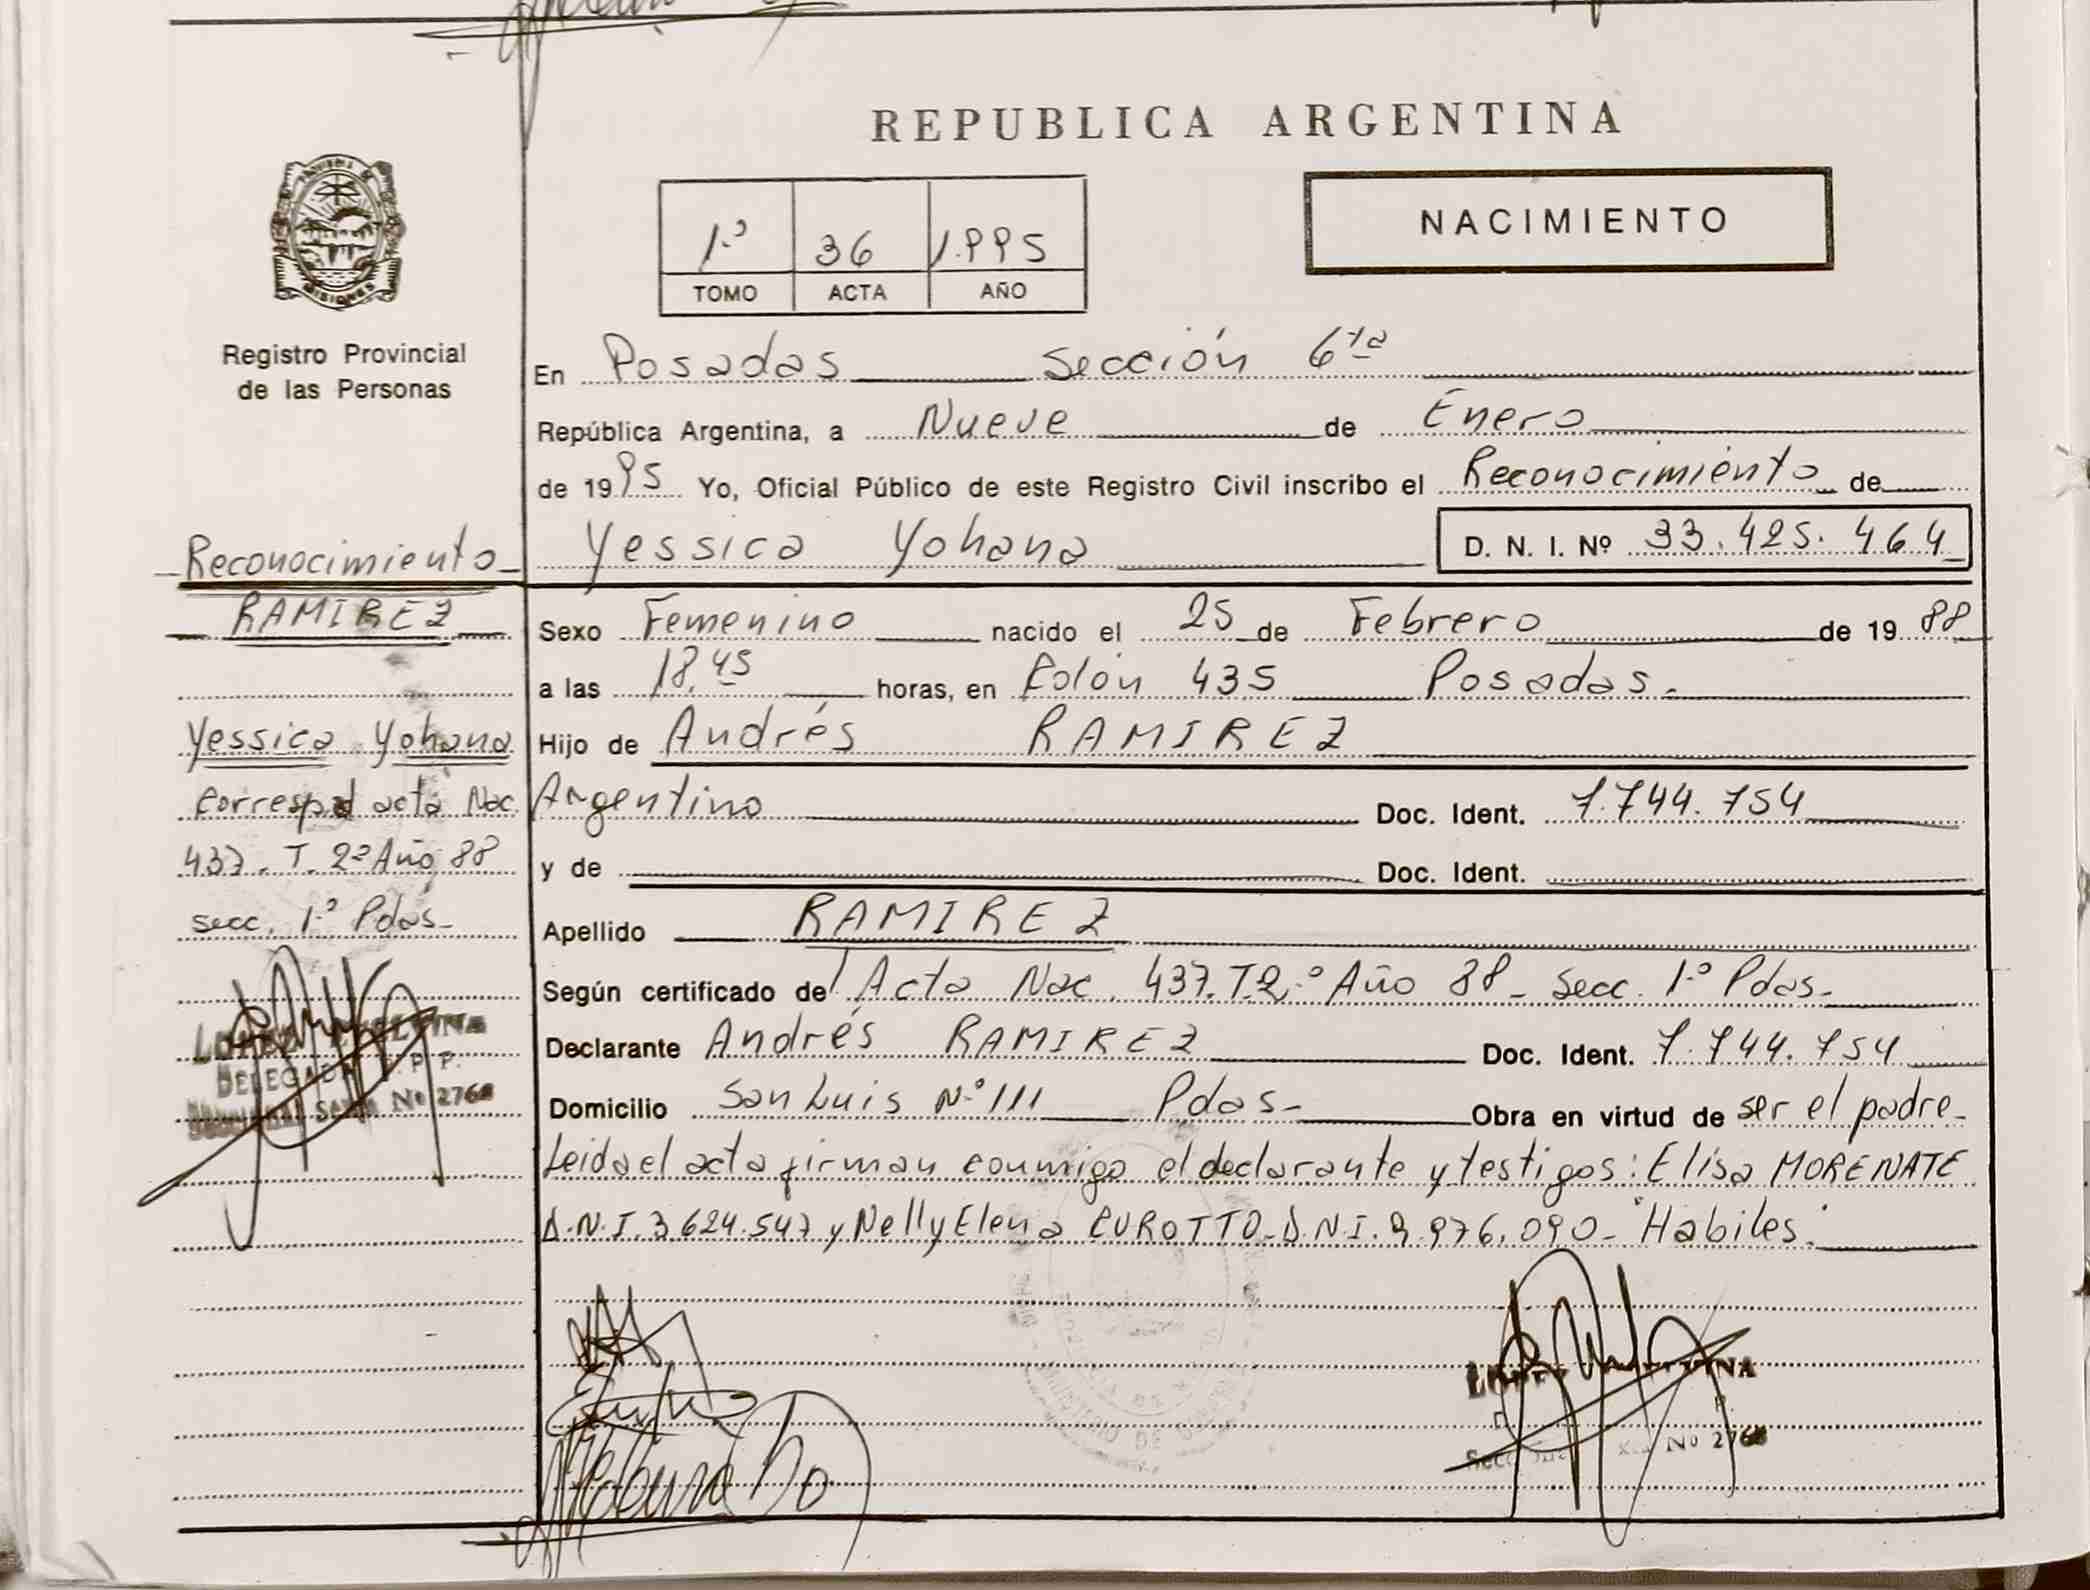 REPUBLICA ARGENTINA
NACIMIENTO
1.º 36 1.995
TOMO ACTA AÑO
MISIONES
Registro Provincial
de las Personas
En Posadas Sección 6ta
República Argentina, a Nueve de Enero
de 1995 Yo, Oficial Público de este Registro Civil inscribo el Reconocimiento de
Yessica Yohana D. N. I. Nº 33.425.464
Sexo Femenino nacido el 25 de Febrero de 1988
a las 18,45 horas, en Colón 435 Posadas.
Hijo de Andrés RAMIREZ
Argentino Doc. Ident. 7.744.754
y de Doc. Ident.
Apellido RAMIREZ
Según certificado de Acta Nac. 437. T.2.º Año 88 - Secc. 1.º Pdas.-
Declarante Andrés RAMIREZ Doc. Ident. 7.744.754
Domicilio San Luis N.º 111 Pdas.- Obra en virtud de ser el padre.
Leida el acta firman conmigo el declarante y testigos: Elisa MORENATE
D.N.I. 3.624.547 y Nelly Elena CUROTTO. D.N.I. 9.976.090- "Habiles".
Reconocimiento
RAMIREZ
Yessica Yohana
Corresp.d acta Nac.
437. T. 2º Año 88
secc. 1.º Pdas.-
DELEGADA
Nº 2768
Nº 2768